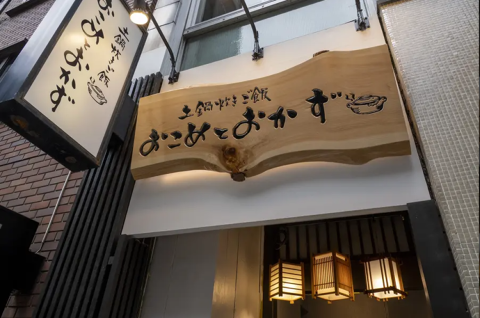 土鍋炊きご飯
おこめとおかず
土鍋炊きご飯
おこめとおかず